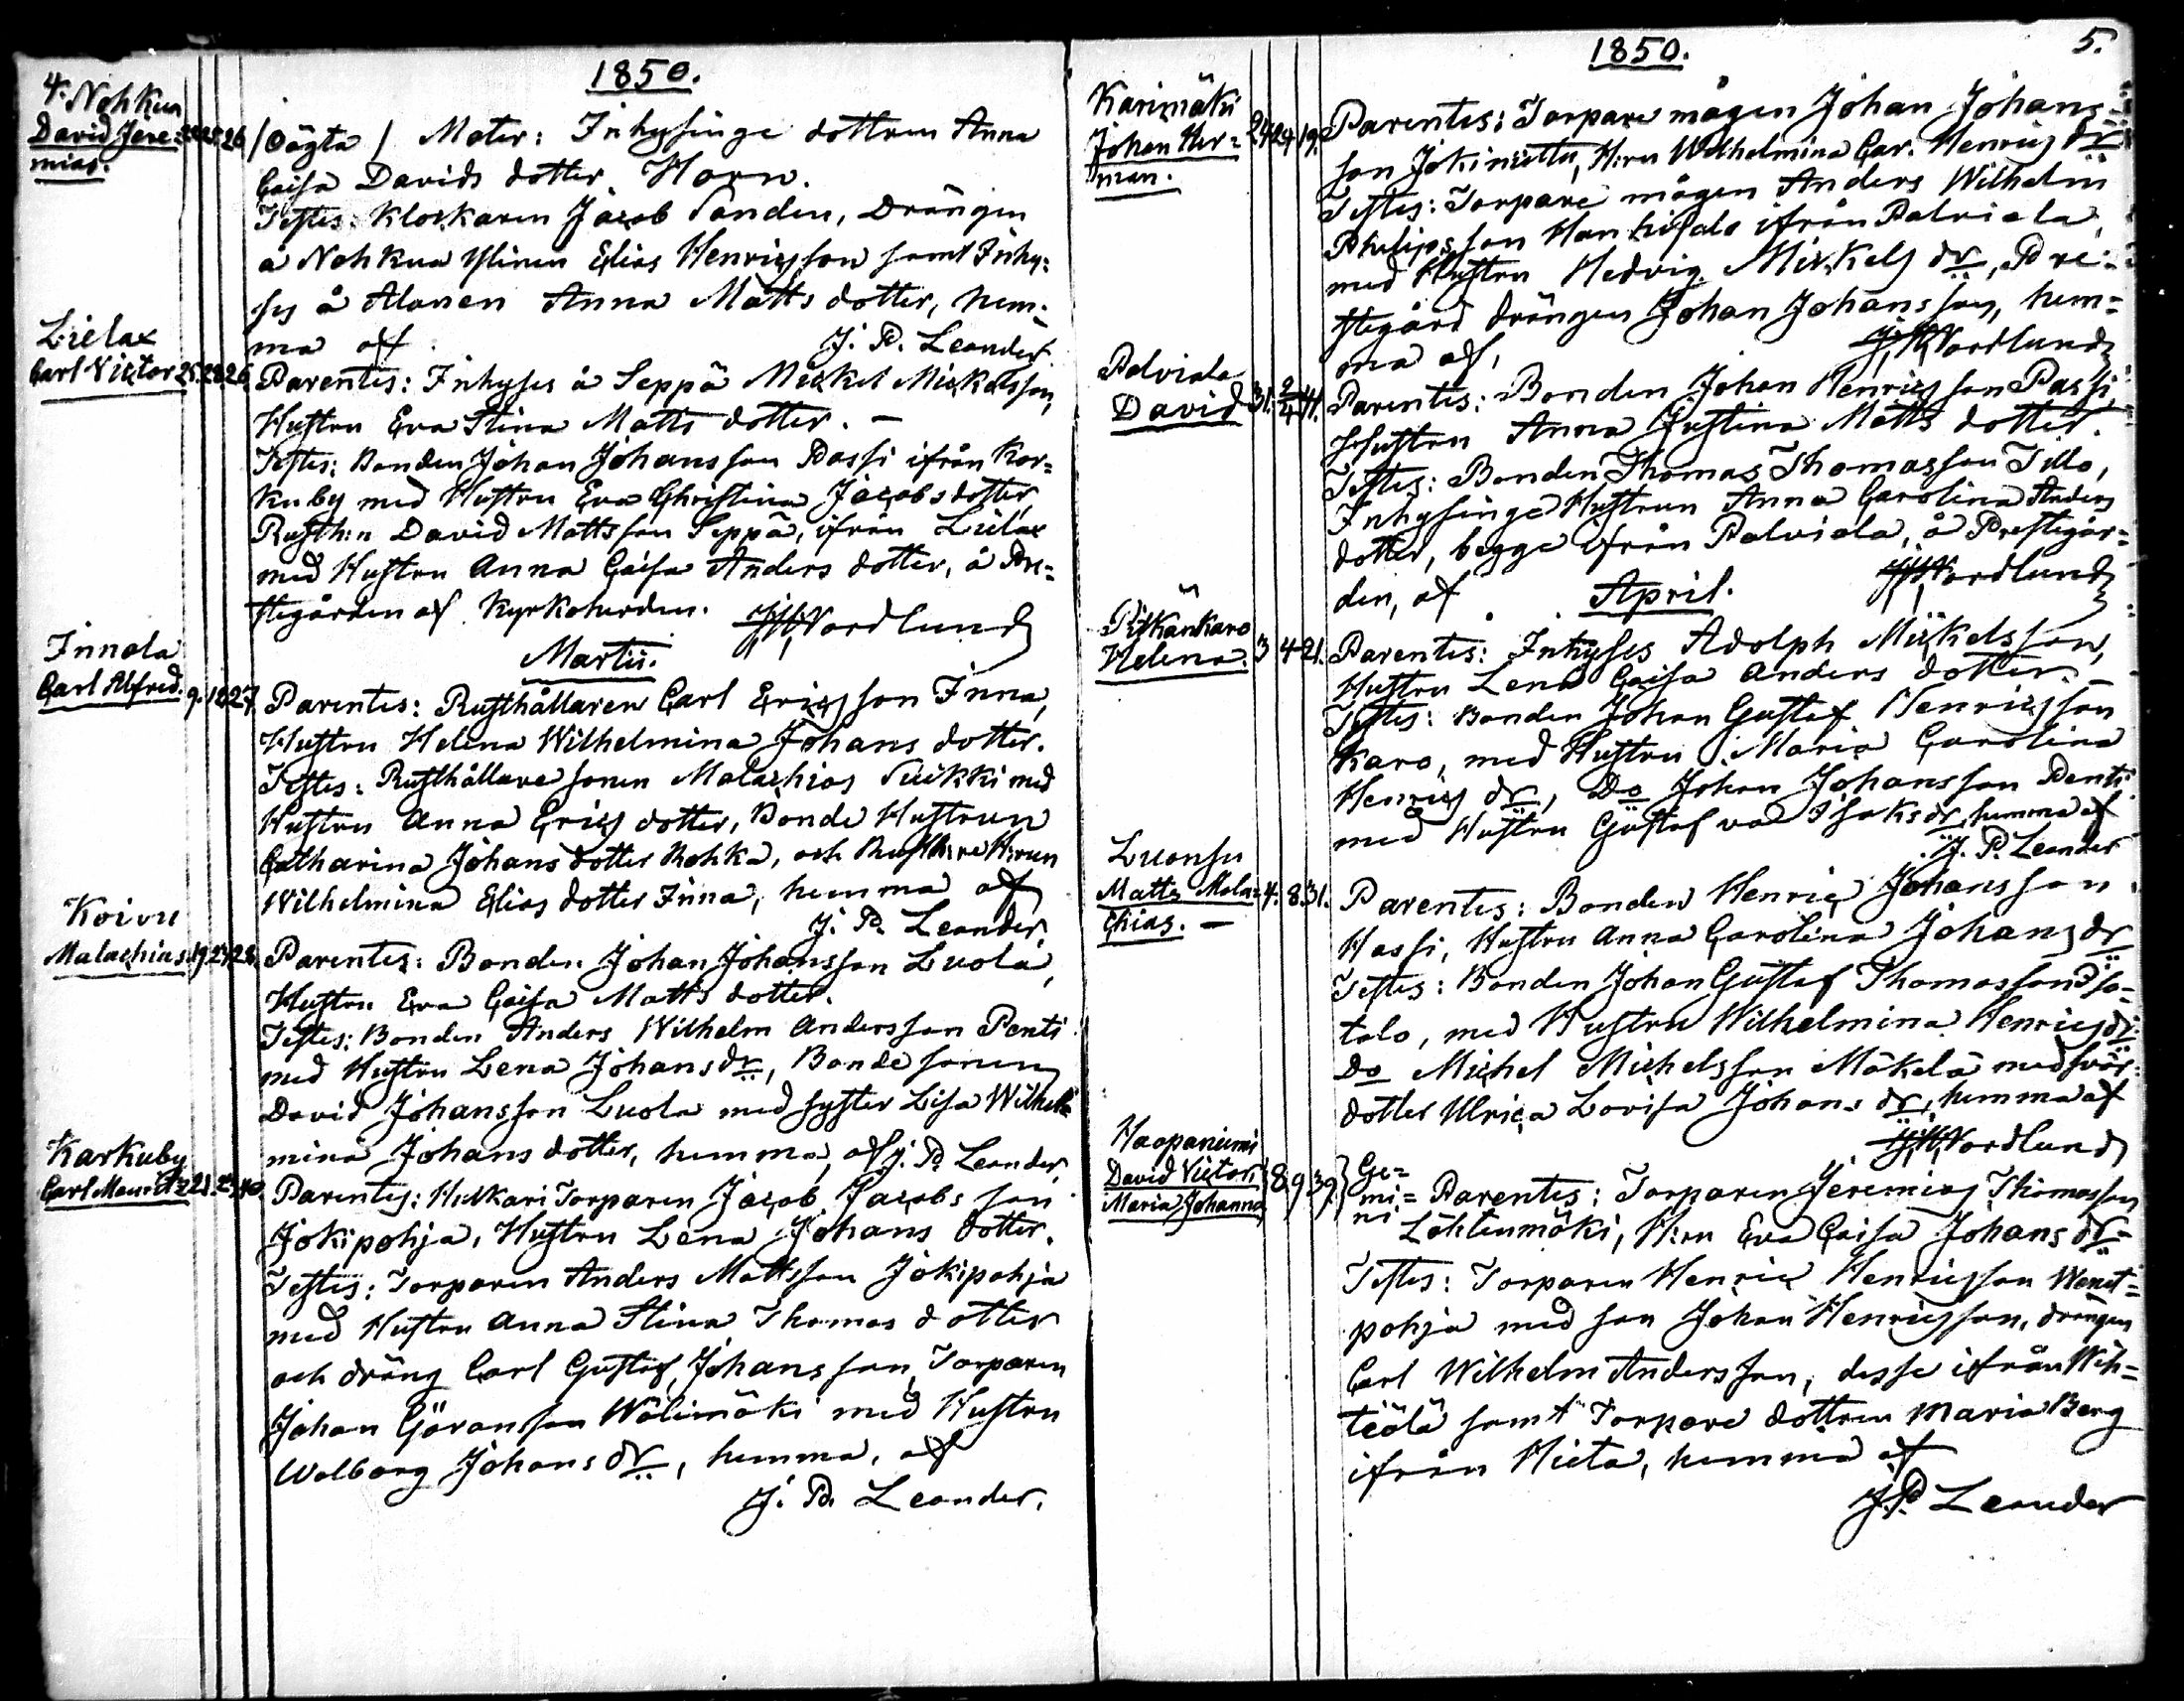 4.
1850.
Nohkua
David Jere=
mias.
22. 25. 26
/Oägta/ Mater: Inhysinge dottren Anna
Caisa Davids dotter Horn.
Testes: Klockaren Jacob Sanden, Drängen
å Nohkua Ylinen Elias Henricsson samt Inhy=
ses å Alanen Anna Matts dotter, hem=
ma af J. P. Leander
Lielax
Carl Victor
Parentes: Inhyses å Seppä Mickel Mickelsson,
Hustru Eva Stina Matts dotter. –
Testes: Bonden Johan Johansson Passi ifrån Kar=
kuby med Hustru Eva Christina Jacobsdotter,
Rusth:n David Mattsson Seppä, ifrån Lielax
med Hustru Anna Caisa Anders dotter, å Pre=
stegården af Kyrkoherden. Nordlund
Martii.
Innala
Carl Alfred.
9. 10 27
Parentes: Rusthållaren Carl Ericsson Inna,
Hustru Helena Wilhelmina Johans dotter.
Testes: Rusthållare sonen Malachias Suikki med
Hustru Anna Erics dotter, Bonde Hustrun
Catharina Johans dotter Rohka, och Rusth:re H:run
Wilhelmina Elias dotter Inna, hemma af
J. P. Leander
Koivu
Malachias
19. 24. 28.
Parentes: Bonden Johan Johansson Luola,
Hustru Eva Caisa Matts dotter.
Testes: Bonden Anders Wilhelm Andersson Penti
med Hustru Lena Johans dr, Bonde sonen
David Johansson Luola med syster Lisa Wilhel=
mina Johans dotter, hemma, af J. P. Leander
Karkuby
Carl Mauritz
Parentes: Torparen Jacob Jacobs son
Jokipohja, Hustru Lena Johans dotter.
Testes: Torparen Anders Mattsson Jokipohja
med Hustru Anna Stina Thomas dotter
och dräng Carl Gustaf Johansson, Torparen
Johan Göransson Wälimäki med Hustru
Walborg Johans dr, hemma, af
J. P. Leander.
1850.
5.
Karimäki
Johan Her=
man.
24 24 19.
Parentes: Torpare mågen Johan Johans=
son Jokiniittu, H:ru Wilhelmina Car. Henrics dr
Testes: Torpare mågen Anders Wilhelm
Philipsson Hankisalo ifrån Palviala,
med Hustru Hedvig Mickels dr, Pre=
stegård drängen Johan Johansson, hem=
ma af, Nordlund
Palviala
David
31. 2/4 41.
Parentes: Bonden Johan Henricsson Passi,
Hustru Anna Justina Matts dotter.
Testes: Bonden Thomas Thomasson Tillo,
Inhysinge Hustrun Anna Carolina Anders
dotter, begge ifrån Palviala, å Prestegår=
den, af Nordlund
April.
Pitkänkaro
Helena.
3 4 21.
Parentes: Inhyses Adolph Mickelsson,
Hustru Lena Caisa Anders dotter. –
Testes: Bonden Johan Gustaf Henricsson
Karo, med Hustru Maria Carolina
Henrics dr, Do Johan Johansson Penti
med Hustru Gustafva Isaks dr, hemma af
J. P. Leander
Luonsu
Matts Mala=
chias. –
4. 8. 31.
Parentes: Bonden Henric Johansson
Hassi, Hustru Anna Carolina Johans dr
Testes: Bonden Johan Gustaf Thomasson Iso=
talo, med Hustru Wilhelmina Henrics dr
Do Michel Michelsson Mäkelä med svär=
dotter Ulrica Lovisa Johans dr, hemma af
Nordlund
Haapaniemi
David Victor
Maria Johanna
8 9 39.
Ge=
mi=
ni
Parentes: Torparen Jeremias Thomasson
Lähtenmäki, H:ru Eva Caisa Johans dr
Testes: Torparen Henric Henricsson
pohja med son Johan Henricsson, drängen
Carl Wilhelm Andersson, desse ifrån Wih=
teölä samt Torpare dottren Maria Berg
ifrån Hieta, hemma af
J. P. Leander